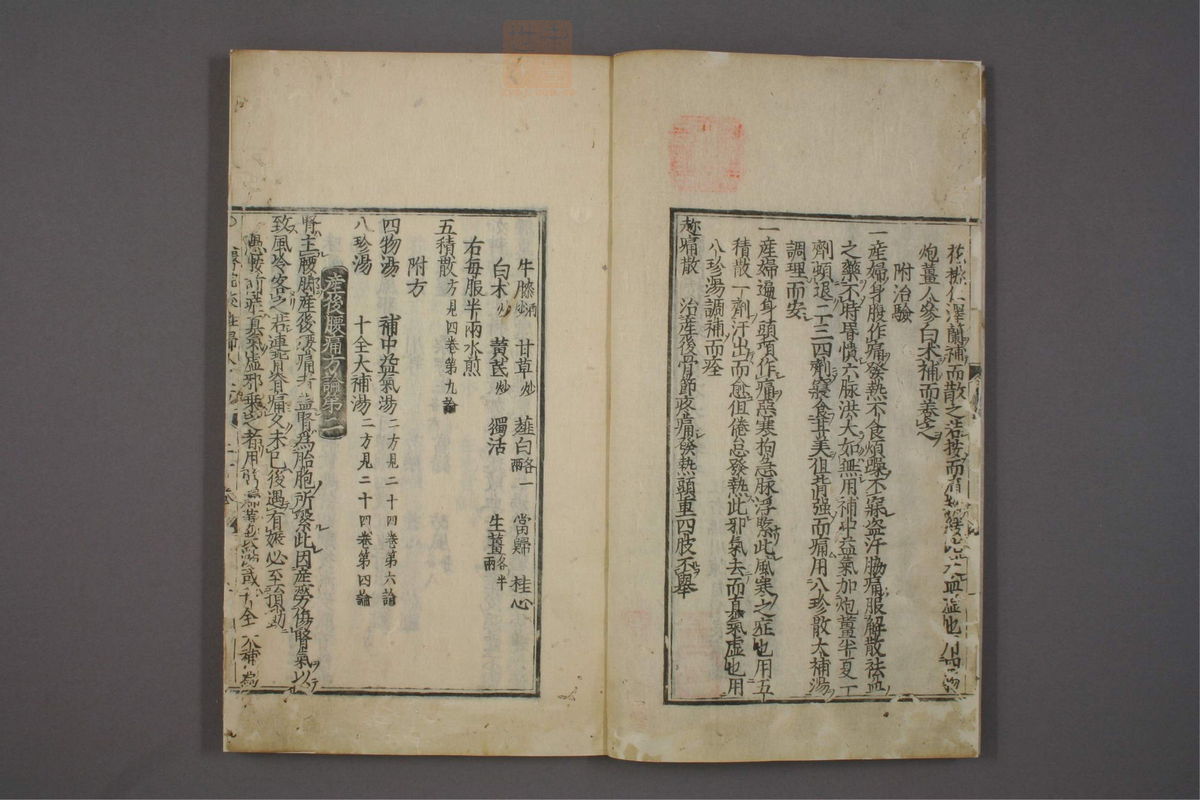 花桃仁澤蘭補而散之若按而
炮薑人參白朮補而養之
附治驗
一産婦身股作痛發熱不食煩躁不寐盗汗脇痛服解散祛血
之藥不時昏憒六脉洪大如無用補中益氣加炮薑半夏一
劑頓退二三四劑寢食甘美但背强而痛用八珍散大補湯
調理而安
一産婦遍身頭項作痛惡寒拘急脉浮緊此風寒之症也用五
積散一劑汗出而愈但倦怠發熱此邪氣去而真氣虚也用
八珍湯調補而痊
趂痛散 治産後骨節疼痛發熱頭重四肢不舉
牛膝酒炒 甘草炒 薤白各一兩 當歸 桂心
白朮炒 黄芪炒 獨活 生薑各半兩
右毎服半兩水煎
五積散方見四卷第九論
附方
四物湯 補中益氣湯二方見二十四卷第六論
八珍湯 十全大補湯二方見二十四卷第四論
産後腰痛方論第二
腎主腰脚産後腰痛者蓋腎爲胎胞所繫此因産勞傷腎氣以
致風冷客之若連背脊痛久未已後遇有娠必至損動
愚按前症真氣虚邪乘之者用